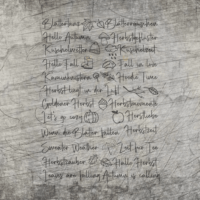 Blätterkranz Blätterrauschen
Hello Autumn Herbstgeflüster
Kuschelwetter Kuschelzeit
Hello Fall Fall in love
Kaminknistern Hoodie Time
Herbst liegt in der Luft
Goldener Herbst Herbstmomente
Let's go cozy Herbstliebe
Wenn die Blätter fallen Herbstzeit
Sweater Weather Zeit für Tee
Herbstzauber Hallo Herbst
Leaves are falling Autumn is calling